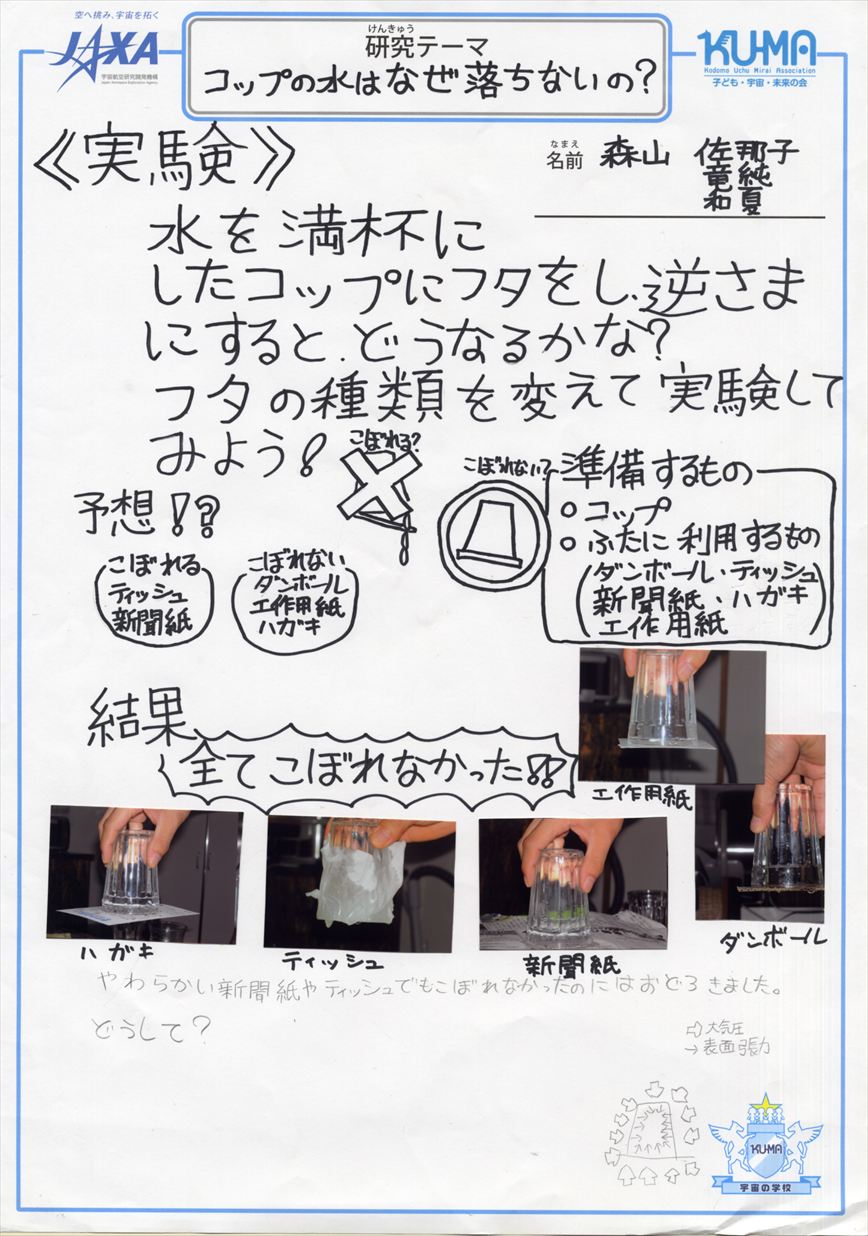 空へ挑み、宇宙を拓く
JAXA
宇宙航空研究開発機構
Japan Aerospace Exploration Agency
けんきゅう
研究テーマ
コップの水はなぜ落ちないの?
KU-MA
Kodomo Uchu Mirai Association
子ども・宇宙・未来の会
《実験》
なまえ
名前 森山 佐那子
竜純
和夏
水を満杯に
したコップにフタをし、逆さま
にすると、どうなるかな?
フタの種類を変えて実験して
みよう!
こぼれる?
こぼれない?
準備するもの
○コップ
○ふたに利用するもの
(ダンボール・ティッシュ
新聞紙・ハガキ
工作用紙)
予想!?
こぼれる
ティッシュ
新聞紙
こぼれない
ダンボール
工作用紙
ハガキ
結果
全てこぼれなかった!!
工作用紙
ハガキ
ティッシュ
新聞紙
ダンボール
やわらかい新聞紙やティッシュでもこぼれなかったのにはおどろきました。
どうして?
⇨大気圧
→表面張力
KU-MA
宇宙の学校